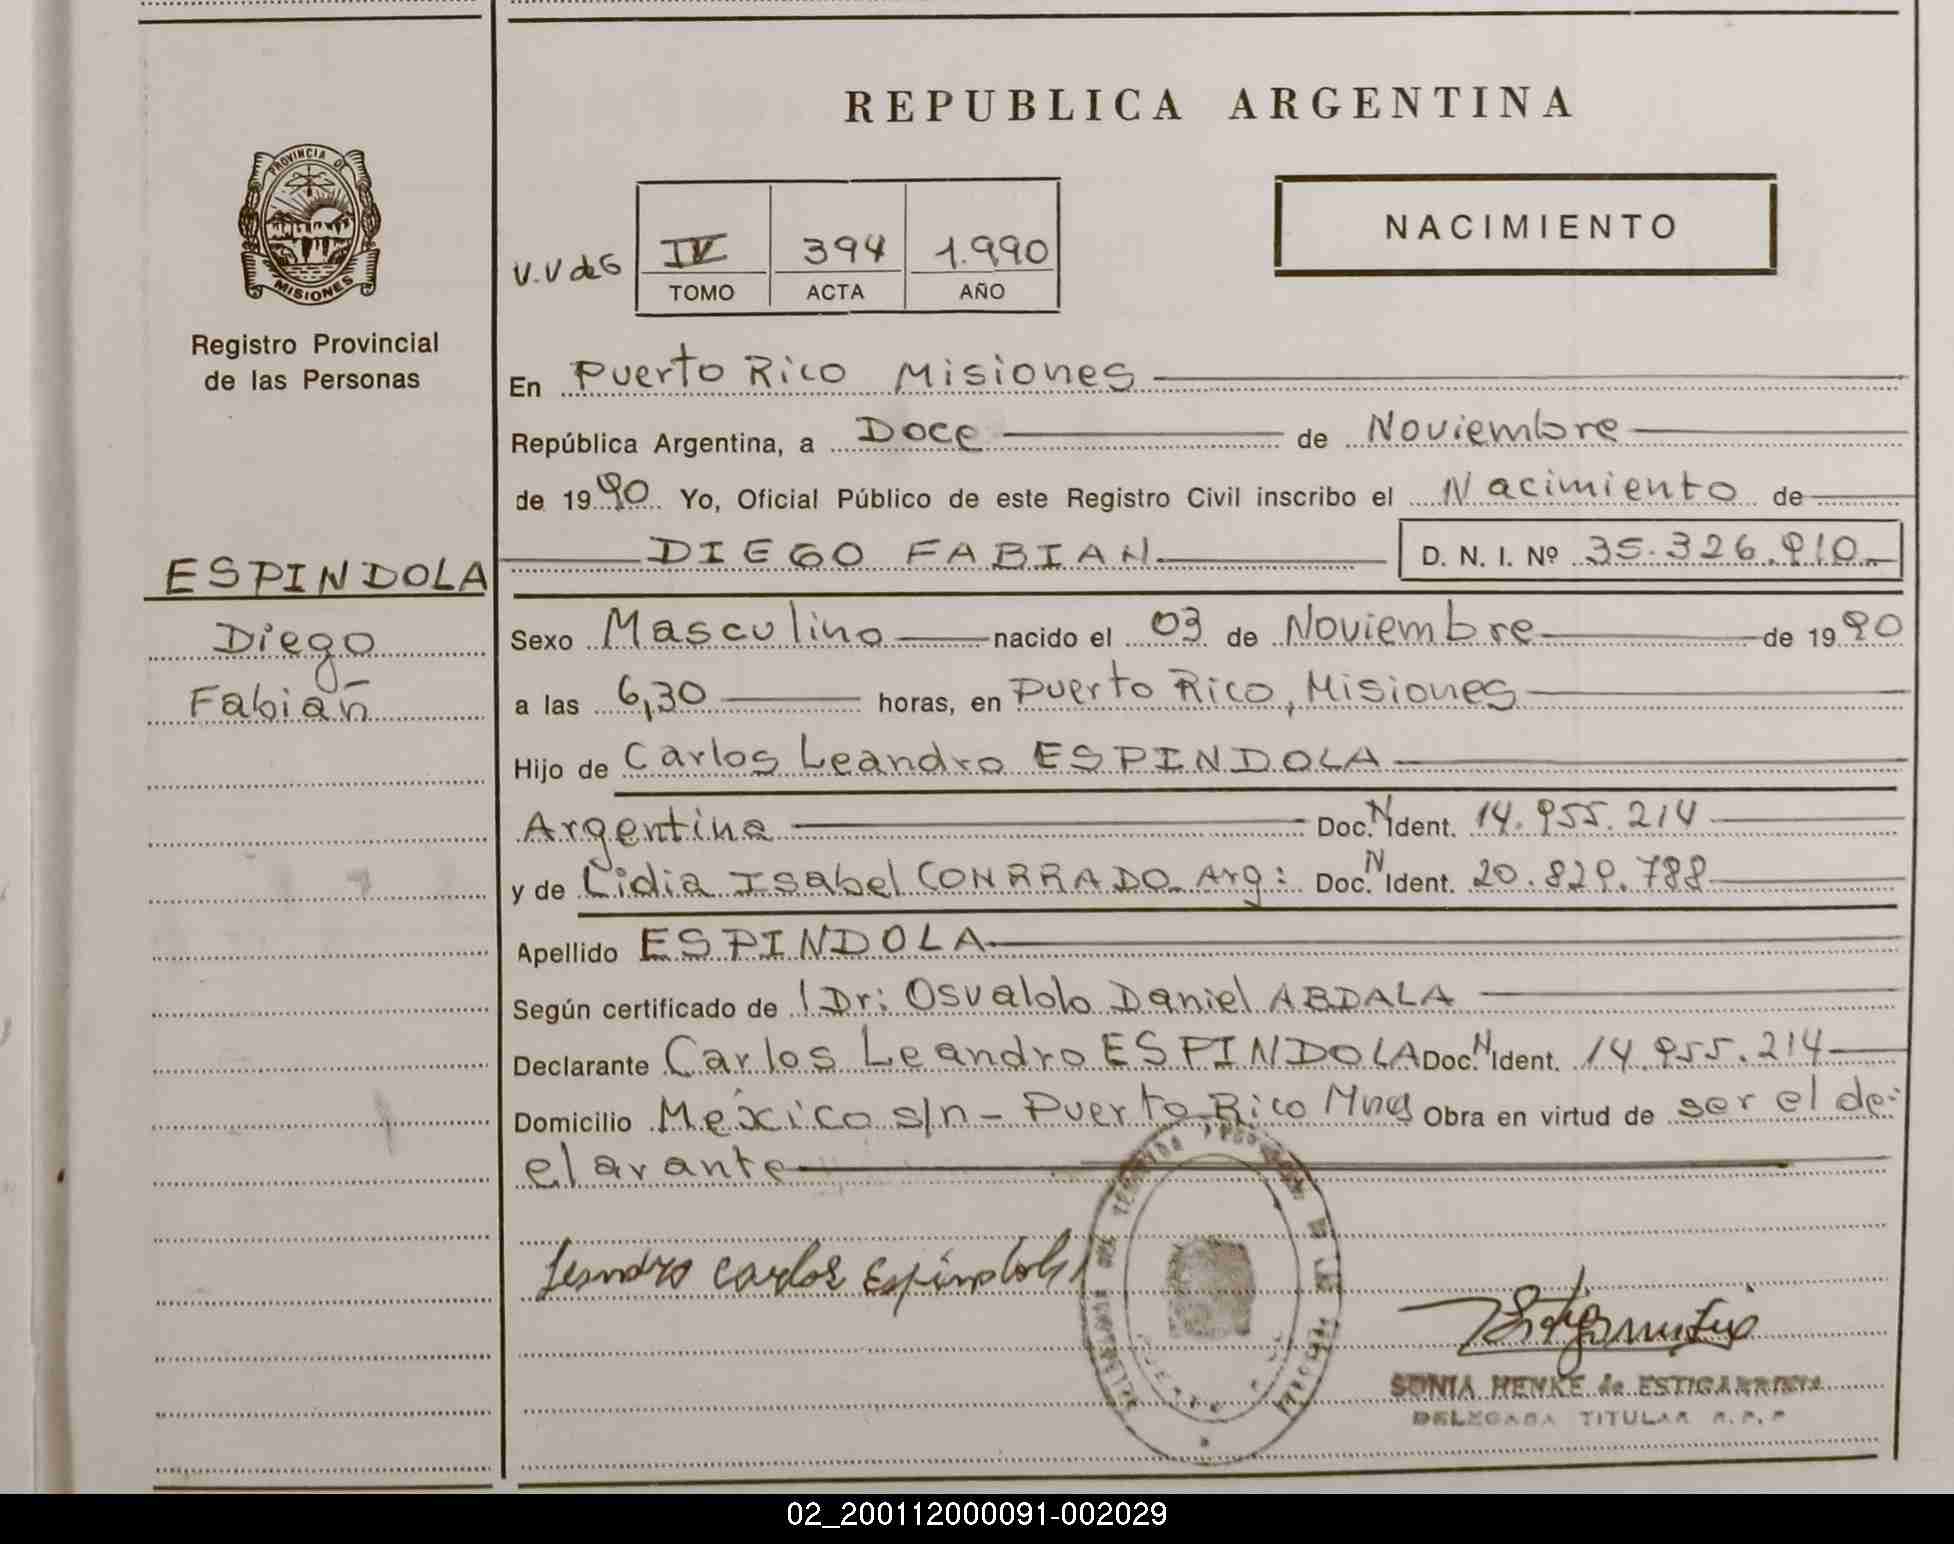 REPUBLICA ARGENTINA
PROVINCIA DE
MISIONES
Registro Provincial
de las Personas
NACIMIENTO
V.V de G
IV 394 1.990
TOMO ACTA AÑO
En Puerto Rico Misiones
República Argentina, a Doce de Noviembre
de 1990 Yo, Oficial Público de este Registro Civil inscribo el Nacimiento de
DIEGO FABIAN D. N. I. Nº 35.326.910
ESPINDOLA
Diego
Fabián
Sexo Masculino nacido el 03 de Noviembre de 1990
a las 6,30 horas, en Puerto Rico, Misiones
Hijo de Carlos Leandro ESPINDOLA
Argentina Doc. N Ident. 14.955.214
y de Lidia Isabel CONRRADO Arg: Doc. N Ident. 20.829.788
Apellido ESPINDOLA
Según certificado de Dr: Osvaldo Daniel ABDALA
Declarante Carlos Leandro ESPINDOLA Doc. N Ident. 14.955.214
Domicilio México s/n - Puerto Rico Mnes Obra en virtud de ser el de-
clarante
Leandro Carlos Espindola
SONIA HENKE de ESTIGARRIBIA
DELEGADA TITULAR R.P.P
02_200112000091-002029